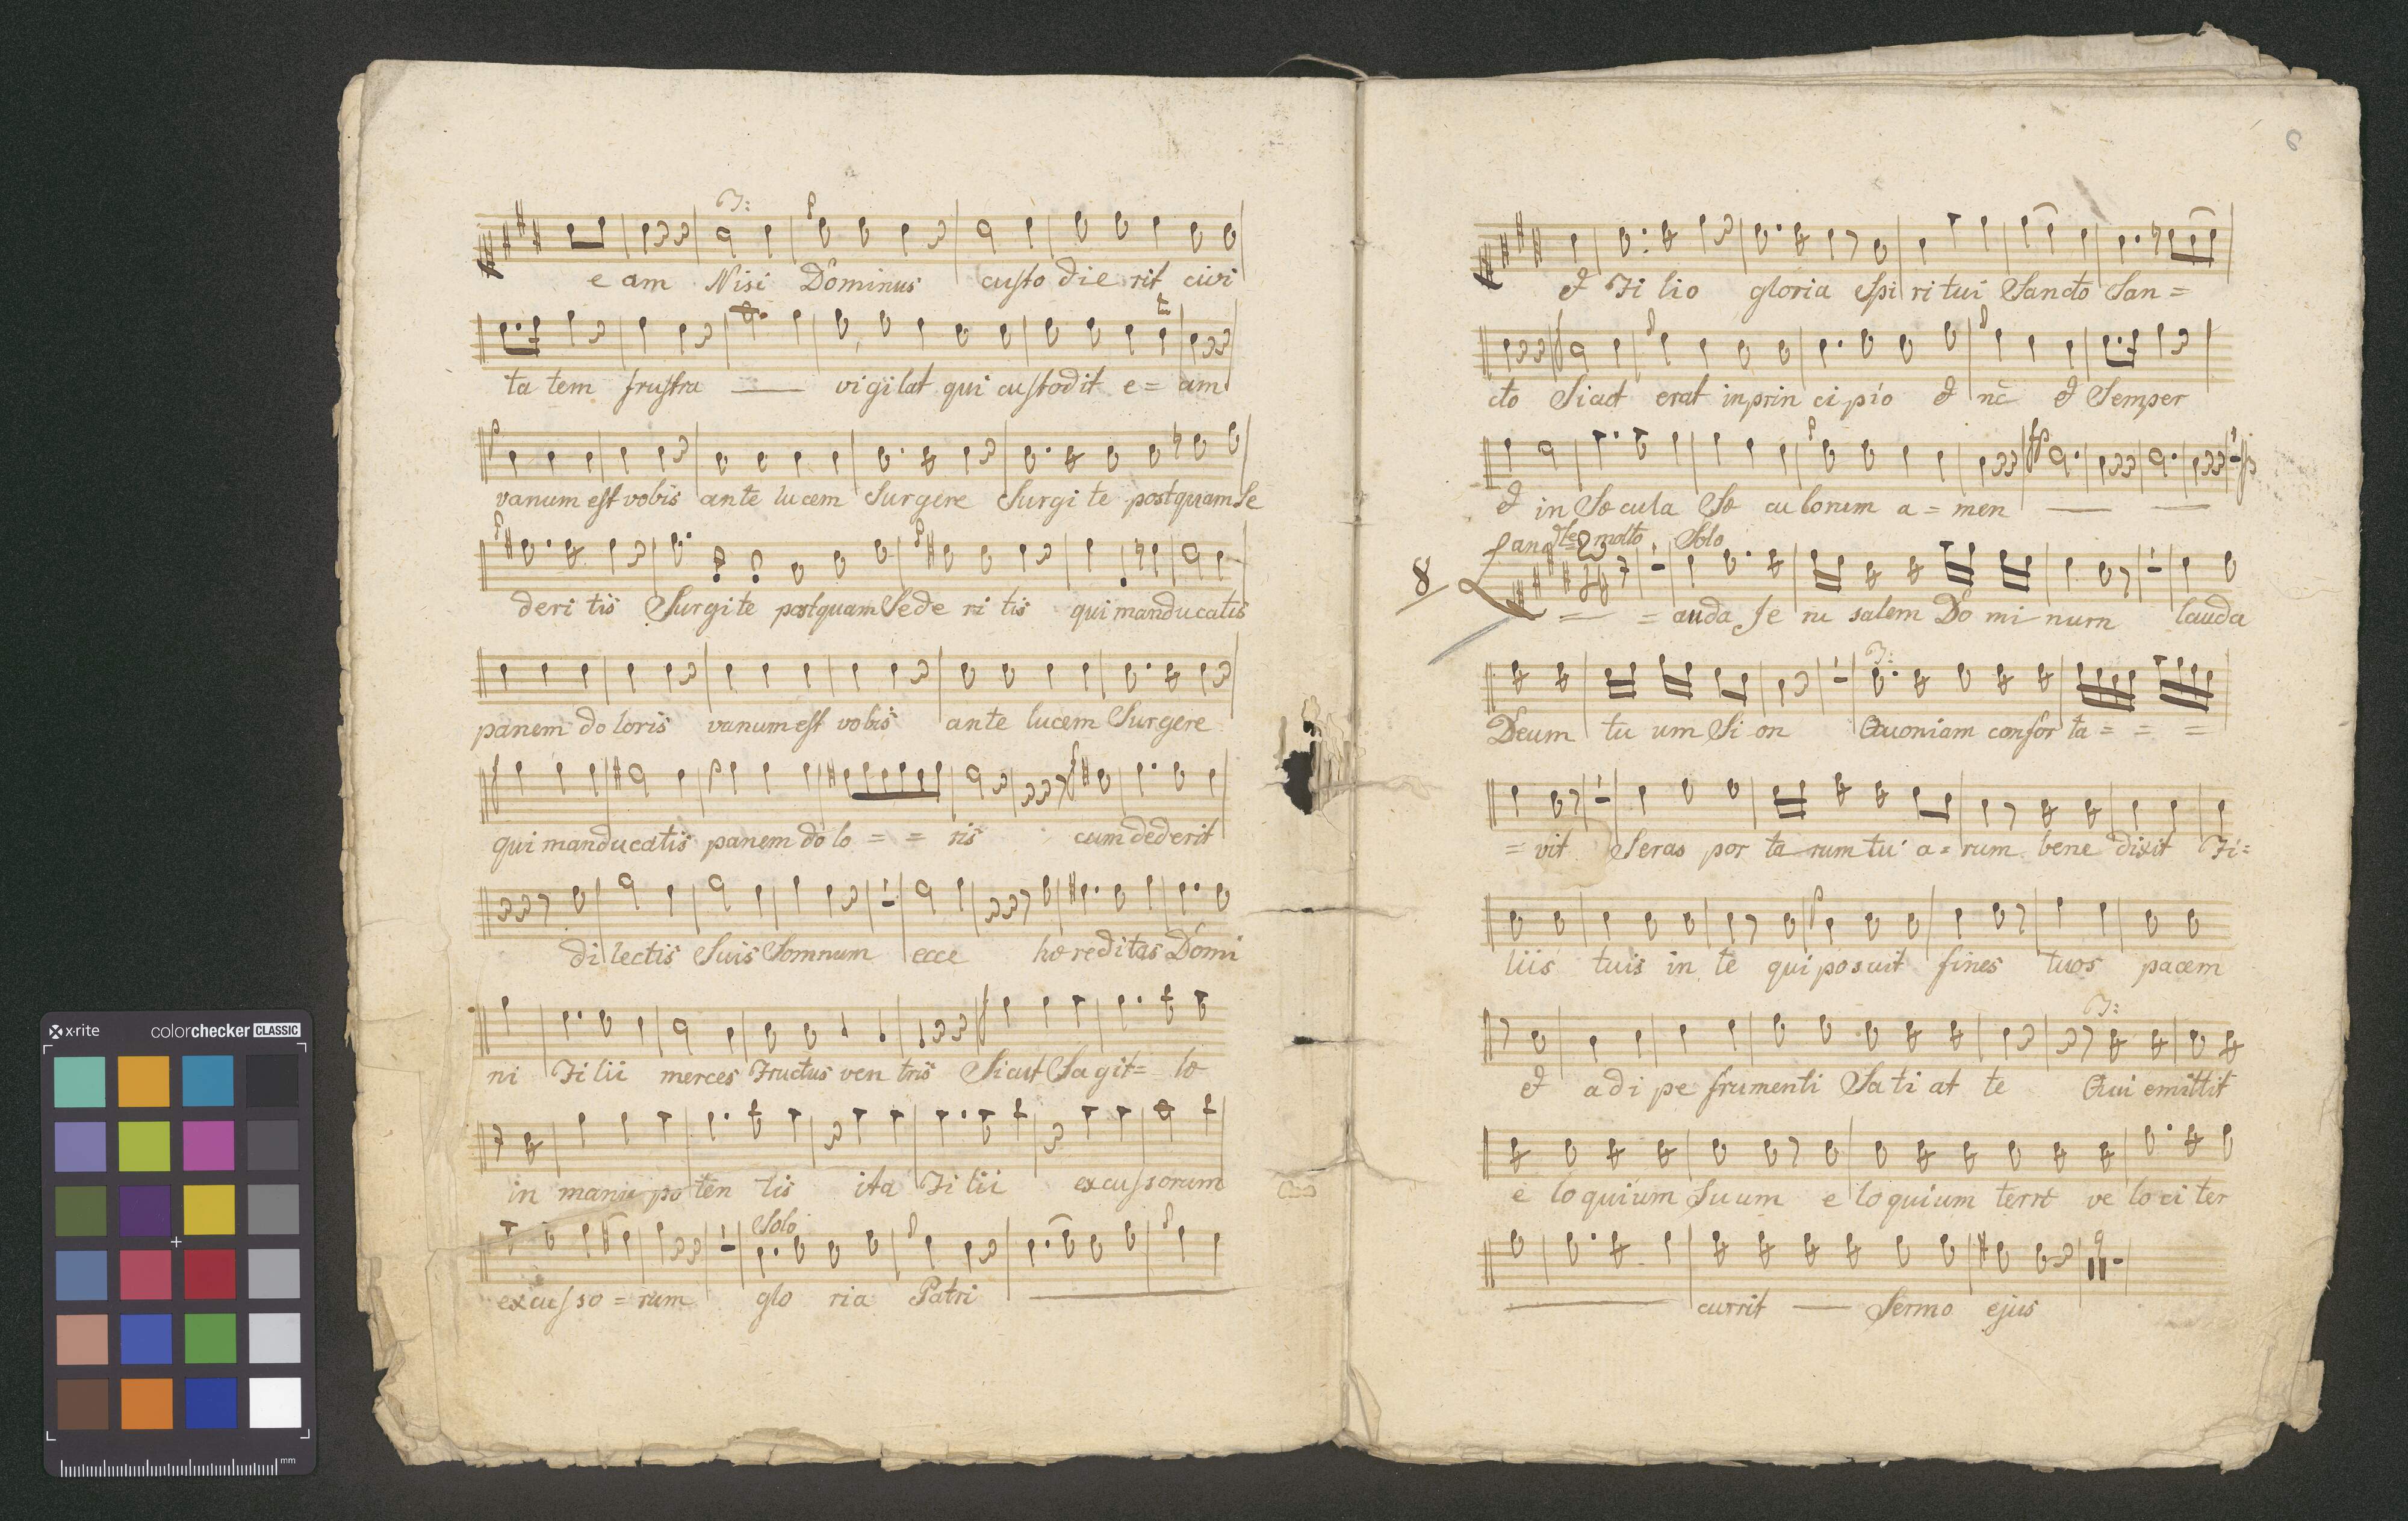 T:
e am Nisi Dominus custo die rit civi
ta tem frustra vi gi lat qui custodit e = am
vanum est vobis ante lucem Surgere Surgi te postquam Se
deri tis Surgi te postquam Sede ri tis qui manducatis
panem do loris vanum est vobis ante lucem Surgere
qui manducatis panem do lo = = ris cum dederit
di lectis Suis Somnum ecce hæ reditas Domi
ni Filii merces Fructus ven tris Sicut Sa git = tæ
in manu po ten tis ita Fi lii excussorum
Solo
excus so = rum glo ria Patri
x-rite colorchecker CLASSIC
mm
6
et Fi lio gloria Spi ri tui Sancto San =
cto Sicut erat in prin ci pio et nc̄ et Semper
et in Sæ cula Sæ cu lorum a = men
andte molto Solo
8 L = = auda Je ru salem Do mi num lauda
T:
Deum tu um Si on Quoniam confor ta = = =
= vit Seras por ta rum tu a = rum bene dixit Fi =
liis tuis in te qui posuit fines tuos pacem
T:
et adi pe frumenti Sa ti at te Qui emittit
e lo quium Suum e lo quium terræ ve lo ci ter
currit Sermo ejus